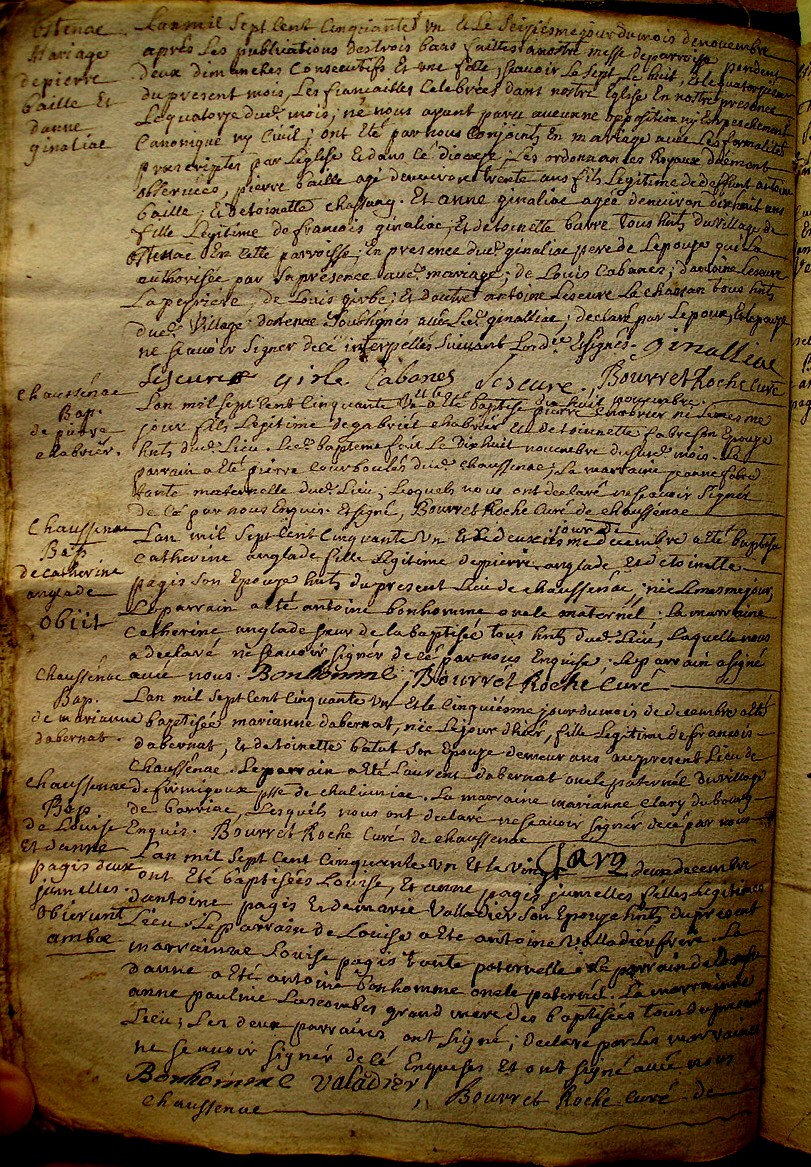 ostenac
Mariage
de pierre
baille Et
danne
ginaliac
L'an mil Sept Cent Cinquante Vn Et Le Seiziesme jour du mois de novembre
aprés Les publications des trois bans faittes a nostre messe de parroisse pendent
deux dimanches Consecutifs Et une fette, scavoir Le Sept, Le huit, Et quatorze
du present mois, Les fiancailles Celebrées dans nostre Eglise En nostre presence
Le quatorze dud. mois; ne nous ayant paru aucunne opposition ny Empeschement
Canonique ny Civil; ont Eté par nous Conjoints En mariage avec Les formalités
prescriptes par L'eglise Et dans Ce diocese; Les ordonnances Royaux duement
observées, pierre baille agé denviron trente ans fils Legitime de deffunt antoine
baille, Et de toinette chassang. Et anne ginaliac agée denviron dixhuit ans
fille Legitime de francois ginaliac, Et de toinette barre tous hnts du village de
ostenac En Cette parroisse; En presence dud. ginaliac pere de Lepouse qui La
authorisée par sa presence aud. mariage; de Louis Cabanes; d'antoine Leseure
Lapeyriere, de Louis girbe; Et d'autre antoine Leseure La charan tous hnts
dud. Village dostenac Soubsignés avec Led. ginalliac; declaré par Lepoux, Et Lepouse
ne scavoir Signer de cé interpellés Suivant Lord.ce Et signés. Ginalliac
Leseure girbe Cabanes Leseure. Bourret Roche Curé
Chaussenac
Bap.
de pierre
chabrier.
L'an mil Sept Cent Cinquante Vn Et le dix huit novembre
a eté baptisé pierre chabrier né Le mesme
jour fils Legitime de gabriel chabrier Et de toinette fabre son Epouse
hnts dud. Lieu. Led. bapteme fait Le Dix huit novembre dud. mois. Le
parrain a eté pierre Courboules dud. chaussenac; La marraine jeanne fabre
tante maternelle dud. Lieu; Lesquels nous ont declaré ne scavoir Signer
de Cé par nous Enquis. Et signé, Bourret Roche Curé de chaussenac
Chaussenac
Bap.
de Catherine
anglade
Obiit
L'an mil Sept Cent Cinquante Vn et Le deuxiesme jour de decembre a eté baptisé
Catherine anglade fille Legitime de pierre anglade Et de toinette
pagis Son Epouse hnts du present Lieu de chaussenac; née Le mesme jour,
Le parrain a eté antoine bonhomme oncle maternel; La marraine
Catherine anglade soeur de la baptisée tous hnts dud. Lieu, Laquelle nous
a declaré ne scavoir Signer de cé par nous Enquise; Le parrain a signé
avec nous. Bonhomme; Bourret Roche Curé
Chaussenac
Bap.
de marianne
dabernat.
L'an mil Sept Cent Cinquante Vn Et Le Cinquiesme jour du mois de decembre a eté
baptisée marianne dabernat, née Le jour d'hier, fille Legitime de francois
dabernat, Et de toinette batut Son Epouse demeurans au present Lieu de
Chaussenac. Le parrain a eté Laurent dabernat oncle paternel du village
de sse de chaliniac. La marraine marianne clary du bourg
de barriac, Lesquels nous ont declaré ne scavoir signer de cé par nous
Enquis. Bourret Roche Curé de chaussenac
Chaussenac
Bap.
de Louise
Et d'anne
pagis deux
jumelles
Obierunt
ambae
L'an mil Sept Cent Cinquante Vn Et Le vingt deux decembre
ont Eté baptisées Louise, Et anne pagis jumelles filles Legitimes
d'antoine pagis Et de marie Valladier Son Epouse hnts du present
Lieu. Le parrain de Louise a eté antoine Valladier frere. La
marrainne Louise pagis tante paternelle. Le parrain
d'anne a eté antoine bonhomme oncle paternel. La marrainne
anne paulmie Lascombes grand mere des baptisées tous du present
Lieu; Les deux parrains ont signé; declaré par Les marraines
ne scavoir signer de cé Enquises, Et ont signé avec nous
Bonhomme Valadier, Bourret Roche Curé de
chaussenac